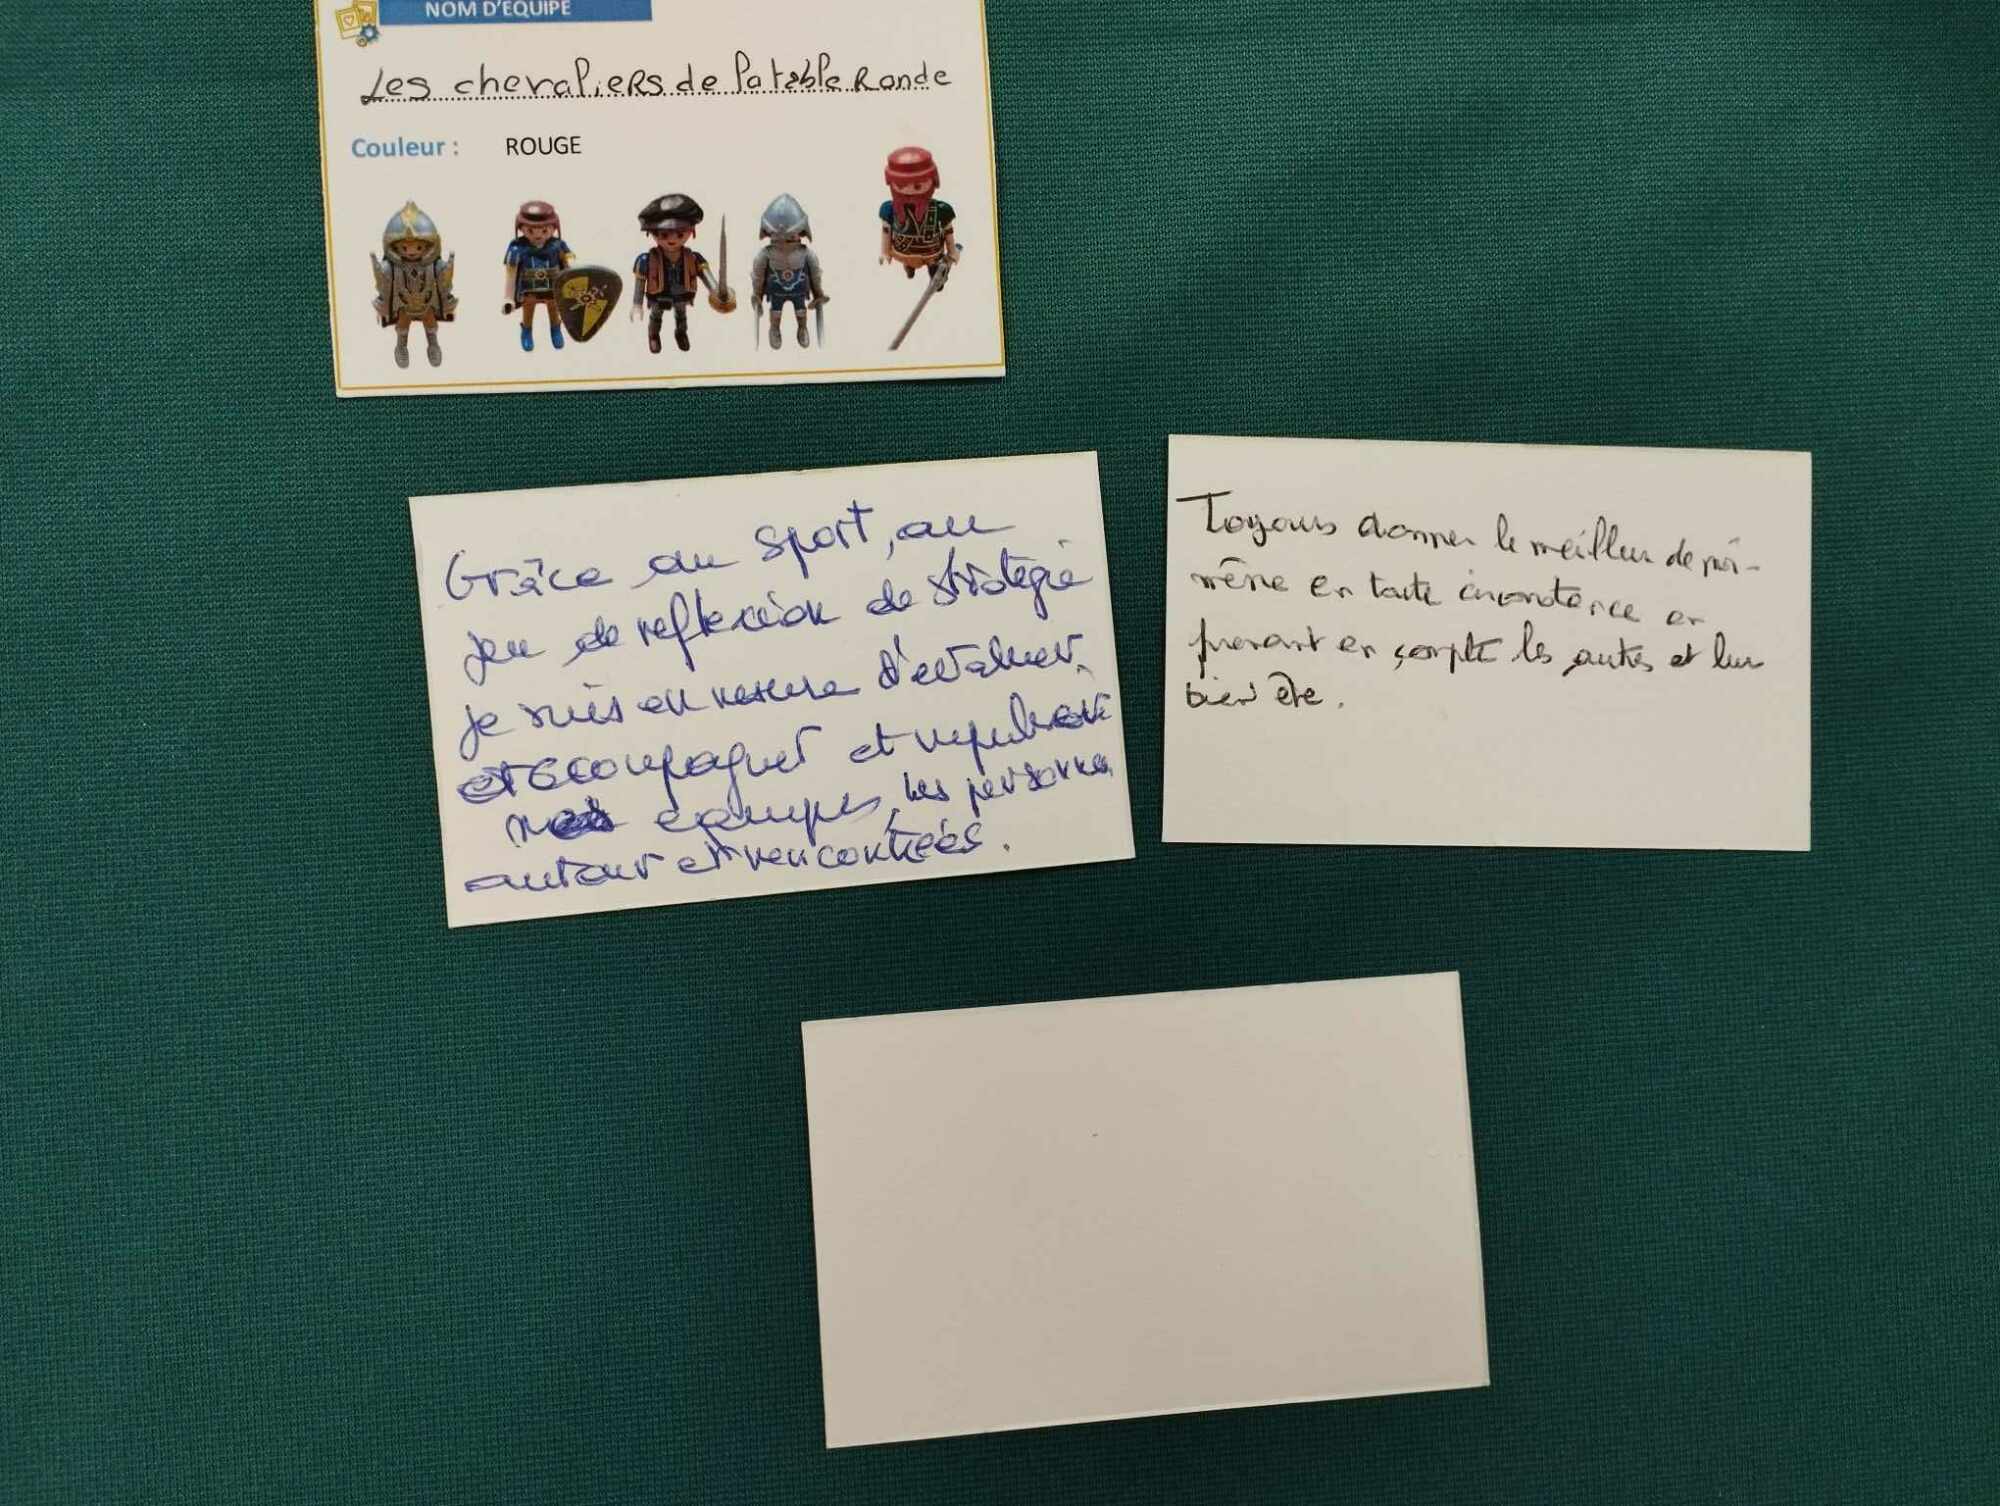 NOM D'ÉQUIPE
Les chevaliers de la table Ronde
Couleur : ROUGE
Grâce au sport, au
jeu de reflexion de stratégie
je suis en mesure d'entrainer,
et accompagner et
equipes, les personnes
autour et rencontrées.
Toujours donner le meilleur de moi-
même en toute circonstance en
prenant en compte les autres et leur
bien être.